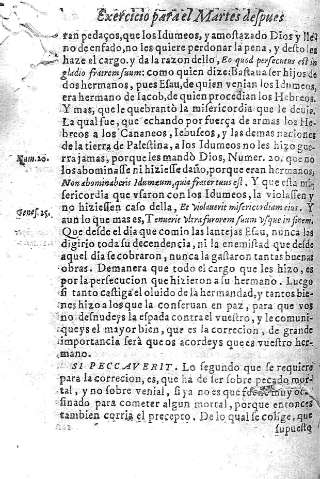 Exercicio para el Martes despues
ran pedaços, que los Idumeos, y amostazado Dios y lle-
no de enfado, no les quiere perdonar la pena, y desto les
haze el cargo. y da la razon dello, Eo quod persecutus est in
gladio fratrem suum: como quien dize: Bastaua ser hijos de
dos hermanos, pues Esau, de quien venian los Idumeos,
era hermano de Iacob, de quien procedian los Hebreos.
Y mas, que le quebrantò la misericordia que le deuia.
La qual fue, que echando por fuerça de armas los He-
breos a los Cananeos, Iebuseos, y las demas naciones
de la tierra de Palestina, a los Idumeos no les hizo gue-
rra jamas, porque les mandò Dios, Numer. 20. que no
Num. 20.
los abominasse ni hiziesse daño, porque eran hermanos,
Non abominaberis Idumeum, quia frater tuus est. Y que esta mi-
sericordia que vsaron con los Idumeos, la violassen y
Genes. 25.
no hiziessen caso della, Et violauit misericordiam eius. Y
aun lo que mas es, Tenuerit vltra furorem suum vsque in finem.
Que desde el dia que comio las lantejas Esau, nunca las
digirio toda su decendencia, ni la enemistad que desde
aquel dia se cobraron, nunca la gastaron tantas buenas
obras. Demanera que todo el cargo que les hizo, es
por la persecucion que hizieron a su hermano. Luego
si tanto castiga el oluido de la hermandad, y tantos bie-
nes hizo a los que la conseruan en paz, para que vos
no desnudeys la espada contra el vuestro, y le comuni-
queys el mayor bien, que es la correcion, de grande
importancia serà que os acordeys que es vuestro her-
mano.
SI PECCAVERIT. Lo segundo que se requiere
para la correcion, es, que ha de ser sobre pecado mor-
tal, y no sobre venial, si ya no es que fuesse muy oca-
sinado para cometer algun mortal, porque entonces
tambien corria el precepto. De lo qual se colige, que
supuesto